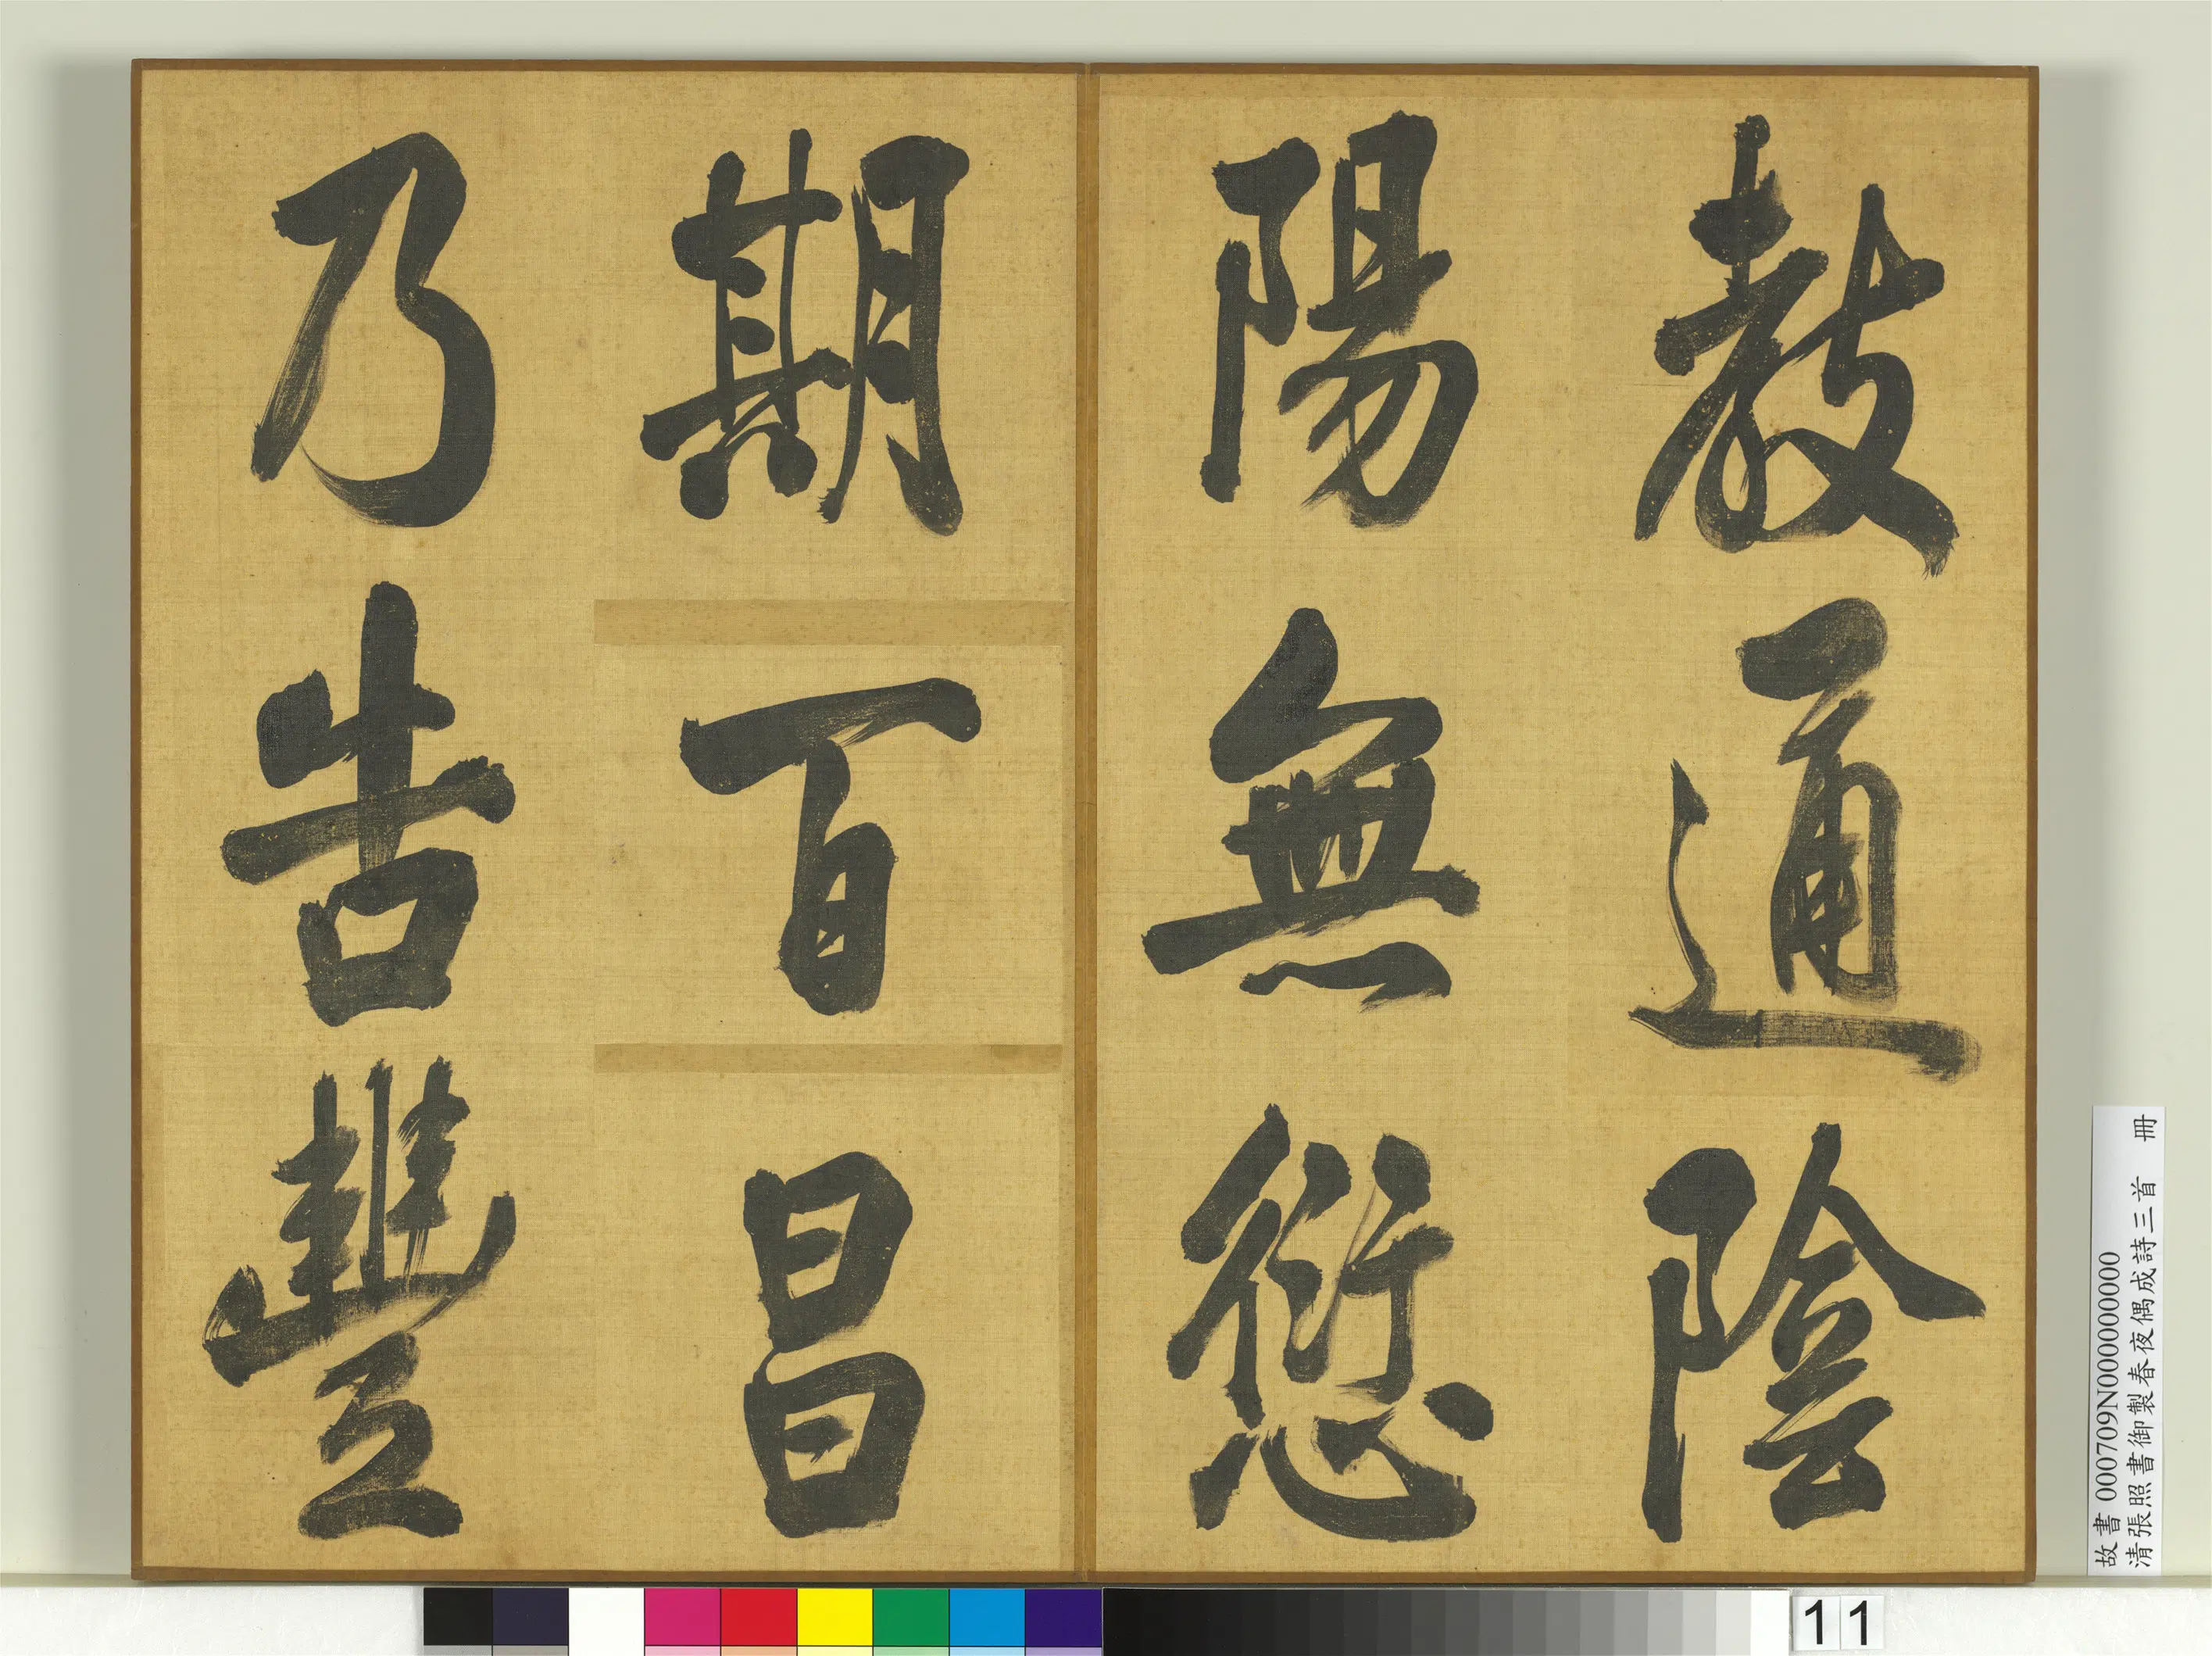 教通陰
陽無愆
期百昌
乃告豐
故書 000709N000000000
清張照書御製春夜偶成詩三首 冊
11